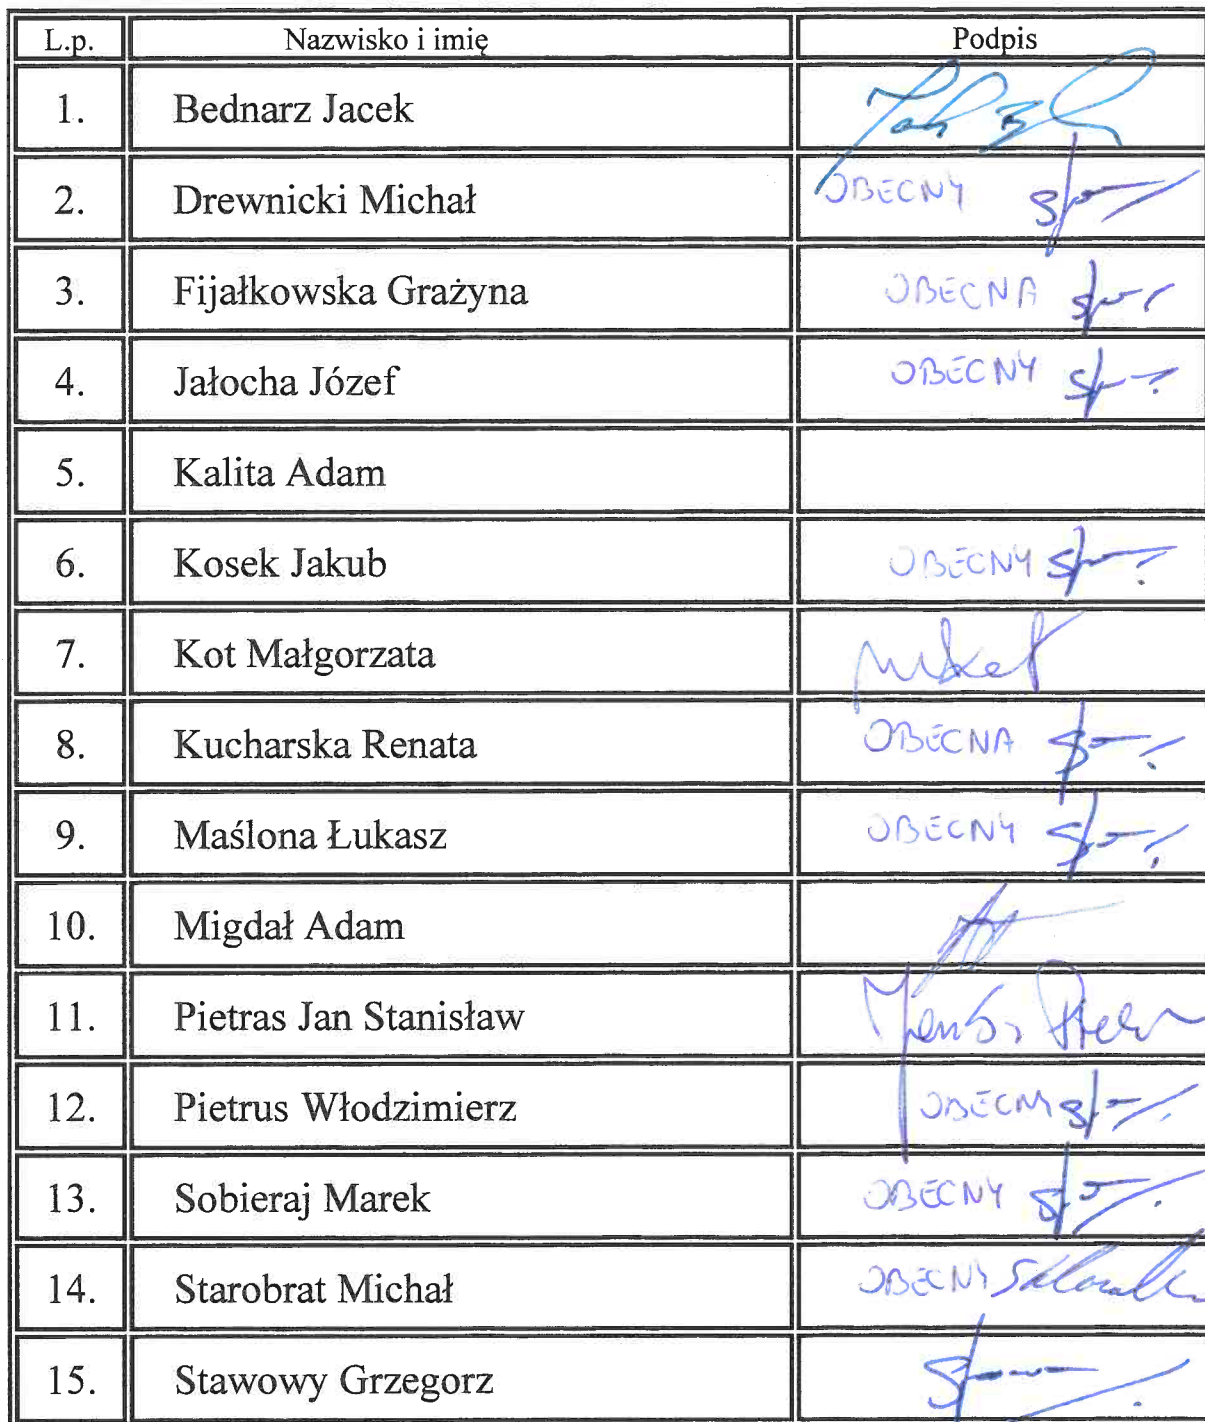 L.p. Nazwisko i imię Podpis
1. Bednarz Jacek
2. Drewnicki Michał OBECNY
3. Fijałkowska Grażyna OBECNA
4. Jałocha Józef OBECNY
5. Kalita Adam
6. Kosek Jakub OBECNY
7. Kot Małgorzata
8. Kucharska Renata OBECNA
9. Maślona Łukasz OBECNY
10. Migdał Adam
11. Pietras Jan Stanisław
12. Pietrus Włodzimierz OBECNY
13. Sobieraj Marek OBECNY
14. Starobrat Michał OBECNY
15. Stawowy Grzegorz